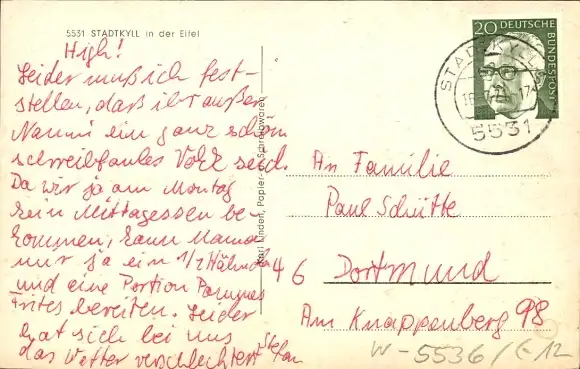 5531 STADTKYLL in der Eifel
High!
Leider muß ich fest-
stellen, daß ihr außer
Nanni ein ganz schön
schreibfaules Volk seid.
Da wir ja am Montag
kein Mittagessen be-
kommen, kann Mama
mir ja ein 1/2 Hähnchen
und eine Portion Pommes
Frites bereiten. Leider
hat sich bei uns
das Wetter verschlechtert
Stefan
Karl Linden, Papier- u. Schreibwaren
20 DEUTSCHE BUNDESPOST
STADTKYLL
5531
An Familie
Paul Schütte
46 Dortmund
Am Knappenberg 98
W-5536/E12